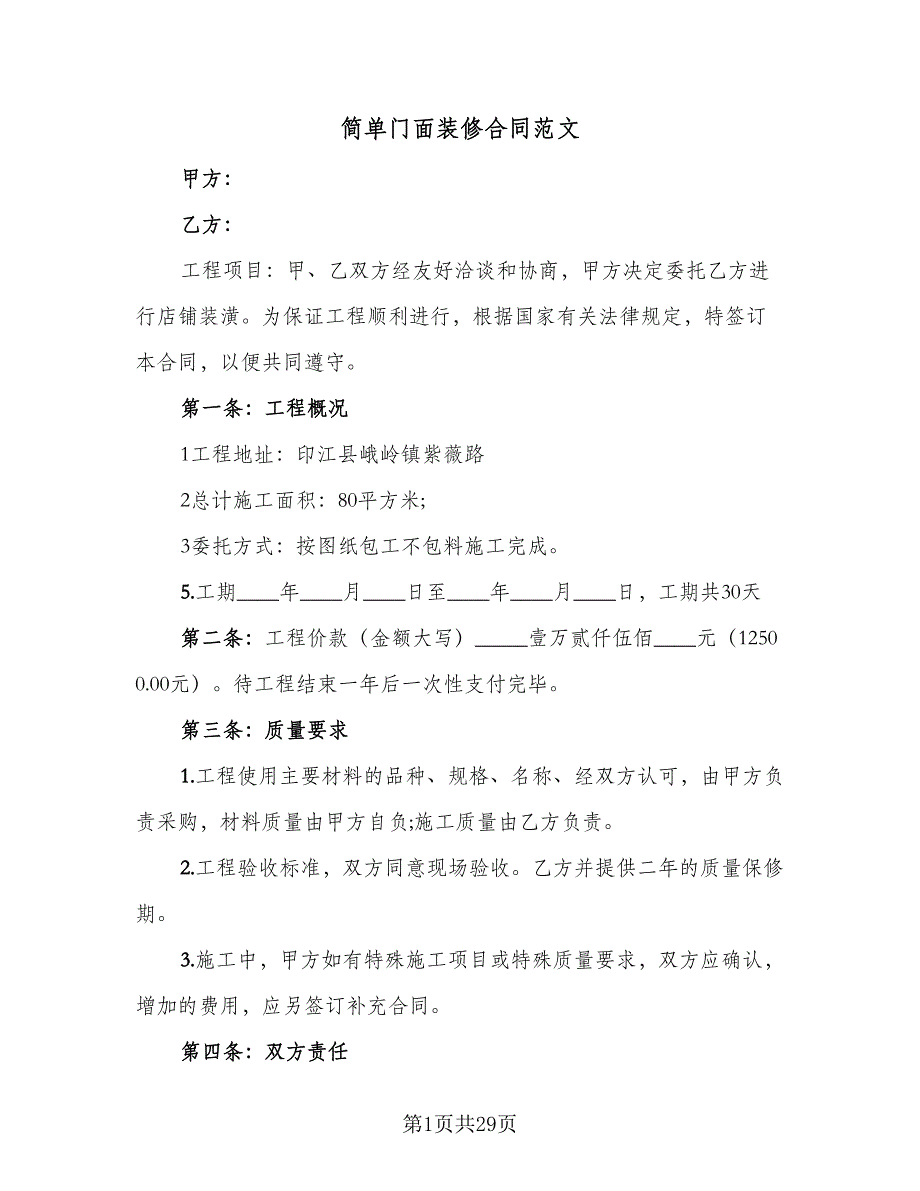 简单门面装修合同范文
甲方：
乙方：
工程项目：甲、乙双方经友好洽谈和协商，甲方决定委托乙方进
行店铺装潢。为保证工程顺利进行，根据国家有关法律规定，特签订
本合同，以便共同遵守。
第一条：工程概况
1工程地址：印江县峨岭镇紫薇路
2总计施工面积：80平方米;
3委托方式：按图纸包工不包料施工完成。
5.工期____年____月____日至____年____月____日，工期共30天
第二条：工程价款（金额大写）_____壹万贰仟伍佰____元（1250
0.00元）。待工程结束一年后一次性支付完毕。
第三条：质量要求
1.工程使用主要材料的品种、规格、名称、经双方认可，由甲方负
责采购，材料质量由甲方自负;施工质量由乙方负责。
2.工程验收标准，双方同意现场验收。乙方并提供二年的质量保修
期。
3.施工中，甲方如有特殊施工项目或特殊质量要求，双方应确认，
增加的费用，应另签订补充合同。
第四条：双方责任
第1页共29页